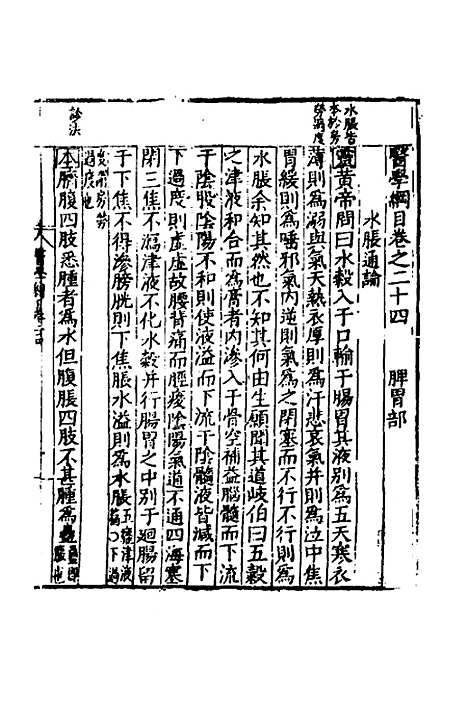 醫學綱目卷之二十四　脾胃部
水脹通論
水脹皆本於房勞過度
黃帝問曰水穀入于口輸于腸胃其液別爲五天寒衣
薄則爲溺與氣天熱衣厚則爲汗悲哀氣并則爲泣中焦
胃緩則爲唾邪氣內逆則氣爲之閉塞而不行不行則爲
水脹余知其然也不知其何由生願聞其道岐伯曰五穀
之津液和合而爲膏者內滲入于骨空補益腦髓而下流
于陰股陰陽不和則使液溢而下流于陰髓液皆減而下
下過度則虛虛故腰背痛而脛痠陰陽氣道不通四海塞
閉三焦不瀉津液不化水穀并行腸胃之中別于廻腸留
于下焦不得滲膀胱則下焦脹水溢則爲水脹五癃津液篇〇下過
度謂房勞過度也
診法
本臍腹四肢悉腫者爲水但腹脹四肢不甚腫爲蠱蠱即脹也